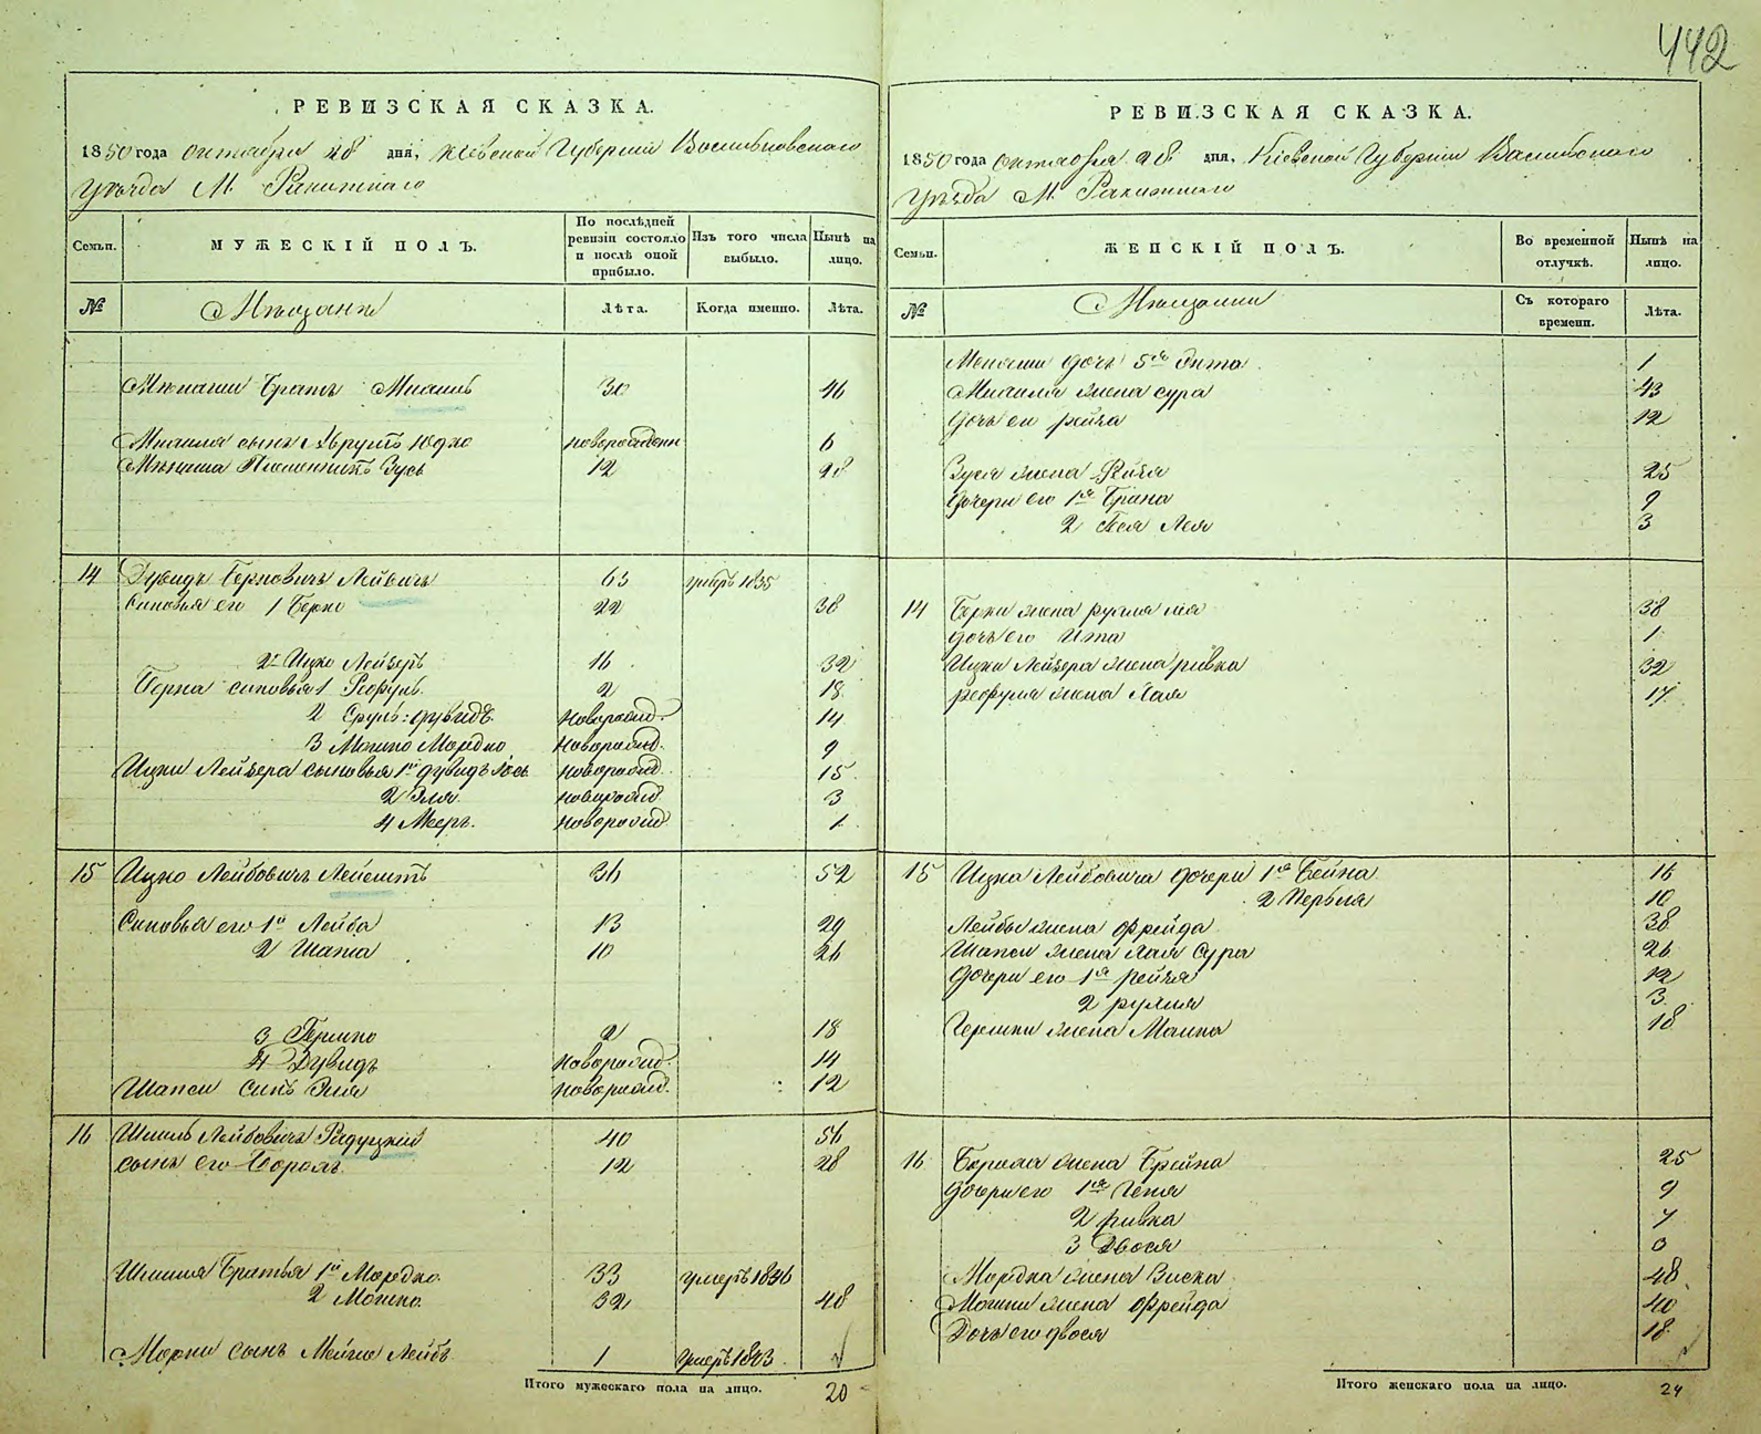 442
РЕВИЗСКАЯ СКАЗКА.
1850 года октября 28 дня, Кіевской Губерніи Васильковского
Уѣзда М. Ракитного
Семьи.
МУЖЕСКІЙ ПОЛЪ.
По послѣдней ревизіи состояло и послѣ оной прибыло.
Изъ того числа выбыло.
Нынѣ на лицо.
№ Мѣщане Лѣта. Когда именно. Лѣта.
Братъ 30 46
сынъ 6
Зусь 12 28
14 Дувидъ Берковичъ 63 умеръ 1835
Сыновья его 1 Берко 22 38
2й Ицко Лейзеръ 16 32
Берка сыновья 1 Рефулъ 2 18
2 Сруль-Дувидъ новорожд. 14
3 Мошко Мордко новорожд. 9
Ицки Лейзера сыновья 1й Дувидъ новорожд. 15
2 Эля новорожд. 3
4 Мееръ. новорожд. 1
15 Ицко Лейбовичъ 36 52
Сыновья его 1й Лейба 13 29
2 10 26
3 Гершко 2 18
4 Дувидъ новорожд. 14
Шапси сынъ Эля новорожд. 12
16 Шмиль Лейбовичъ Радуцкій 40 56
сынъ его 12 28
Шмиля Братья 1й Мордко 33 умеръ 1846
2 Мошко 32 48
сынъ Лейбъ 1 умеръ 1843
Итого мужескаго пола на лицо. 20
РЕВИЗСКАЯ СКАЗКА.
1850 года октября 28 дня, Кіевской Губерніи
Уѣзда М. Ракитного
Семьи.
ЖЕНСКІЙ ПОЛЪ.
Во временной отлучкѣ.
Нынѣ на лицо.
№ Мѣщанки Съ котораго времени. Лѣта.
дочь 5я 1
жена сура 43
дочь ея рейза 12
Зуся жена 25
дочери его 1я Брана 9
2 Лея 3
14 Берки жена 38
дочь его Ита 1
Ицки Лейзера жена ривка 32
рефула жена Хая 17
15 Ицка Лейбовича дочери 1я Бейна 16
2 Перля 10
Лейбы жена Фрейда 38
Шапси жена Хая Сура 26
дочери его 1я рейзя 12
2 рухля 3
Гершки жена Малка 18
16 жена Брейна 25
дочери его 1я Геня 9
2 ривка 7
3 Двося
Мордка жена Виска 48
Мошки жена Фрейда 40
Дочь его двося 18
Итого женскаго пола на лицо. 24